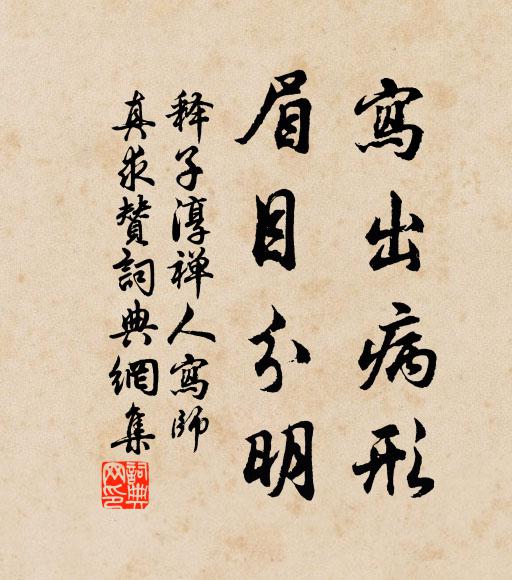 寫出病形
眉目分明
释子淳禅人寫師
真求赞詞典網集
詞典網印